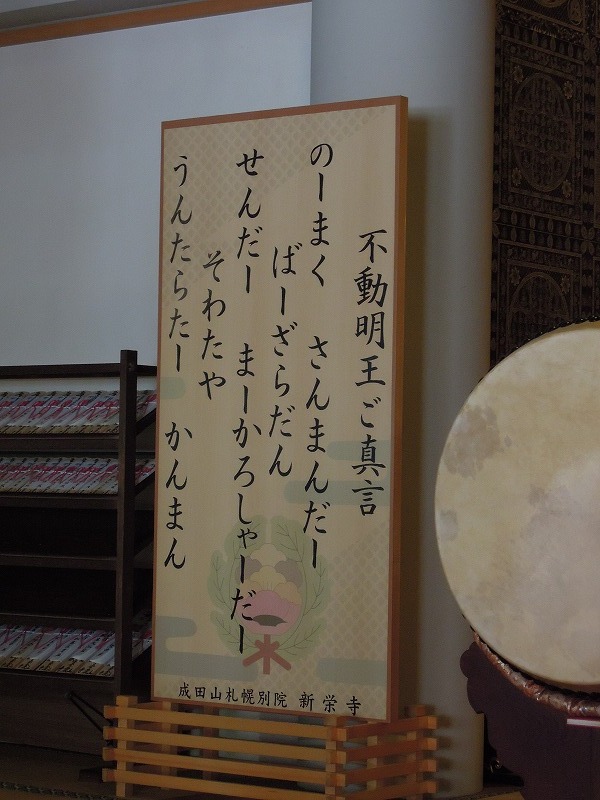 不動明王ご真言
のーまく　さんまんだー
ばーざらだん
せんだー　まーかろしゃーだー
そわたや
うんたらたー　かんまん
成田山札幌別院 新栄寺